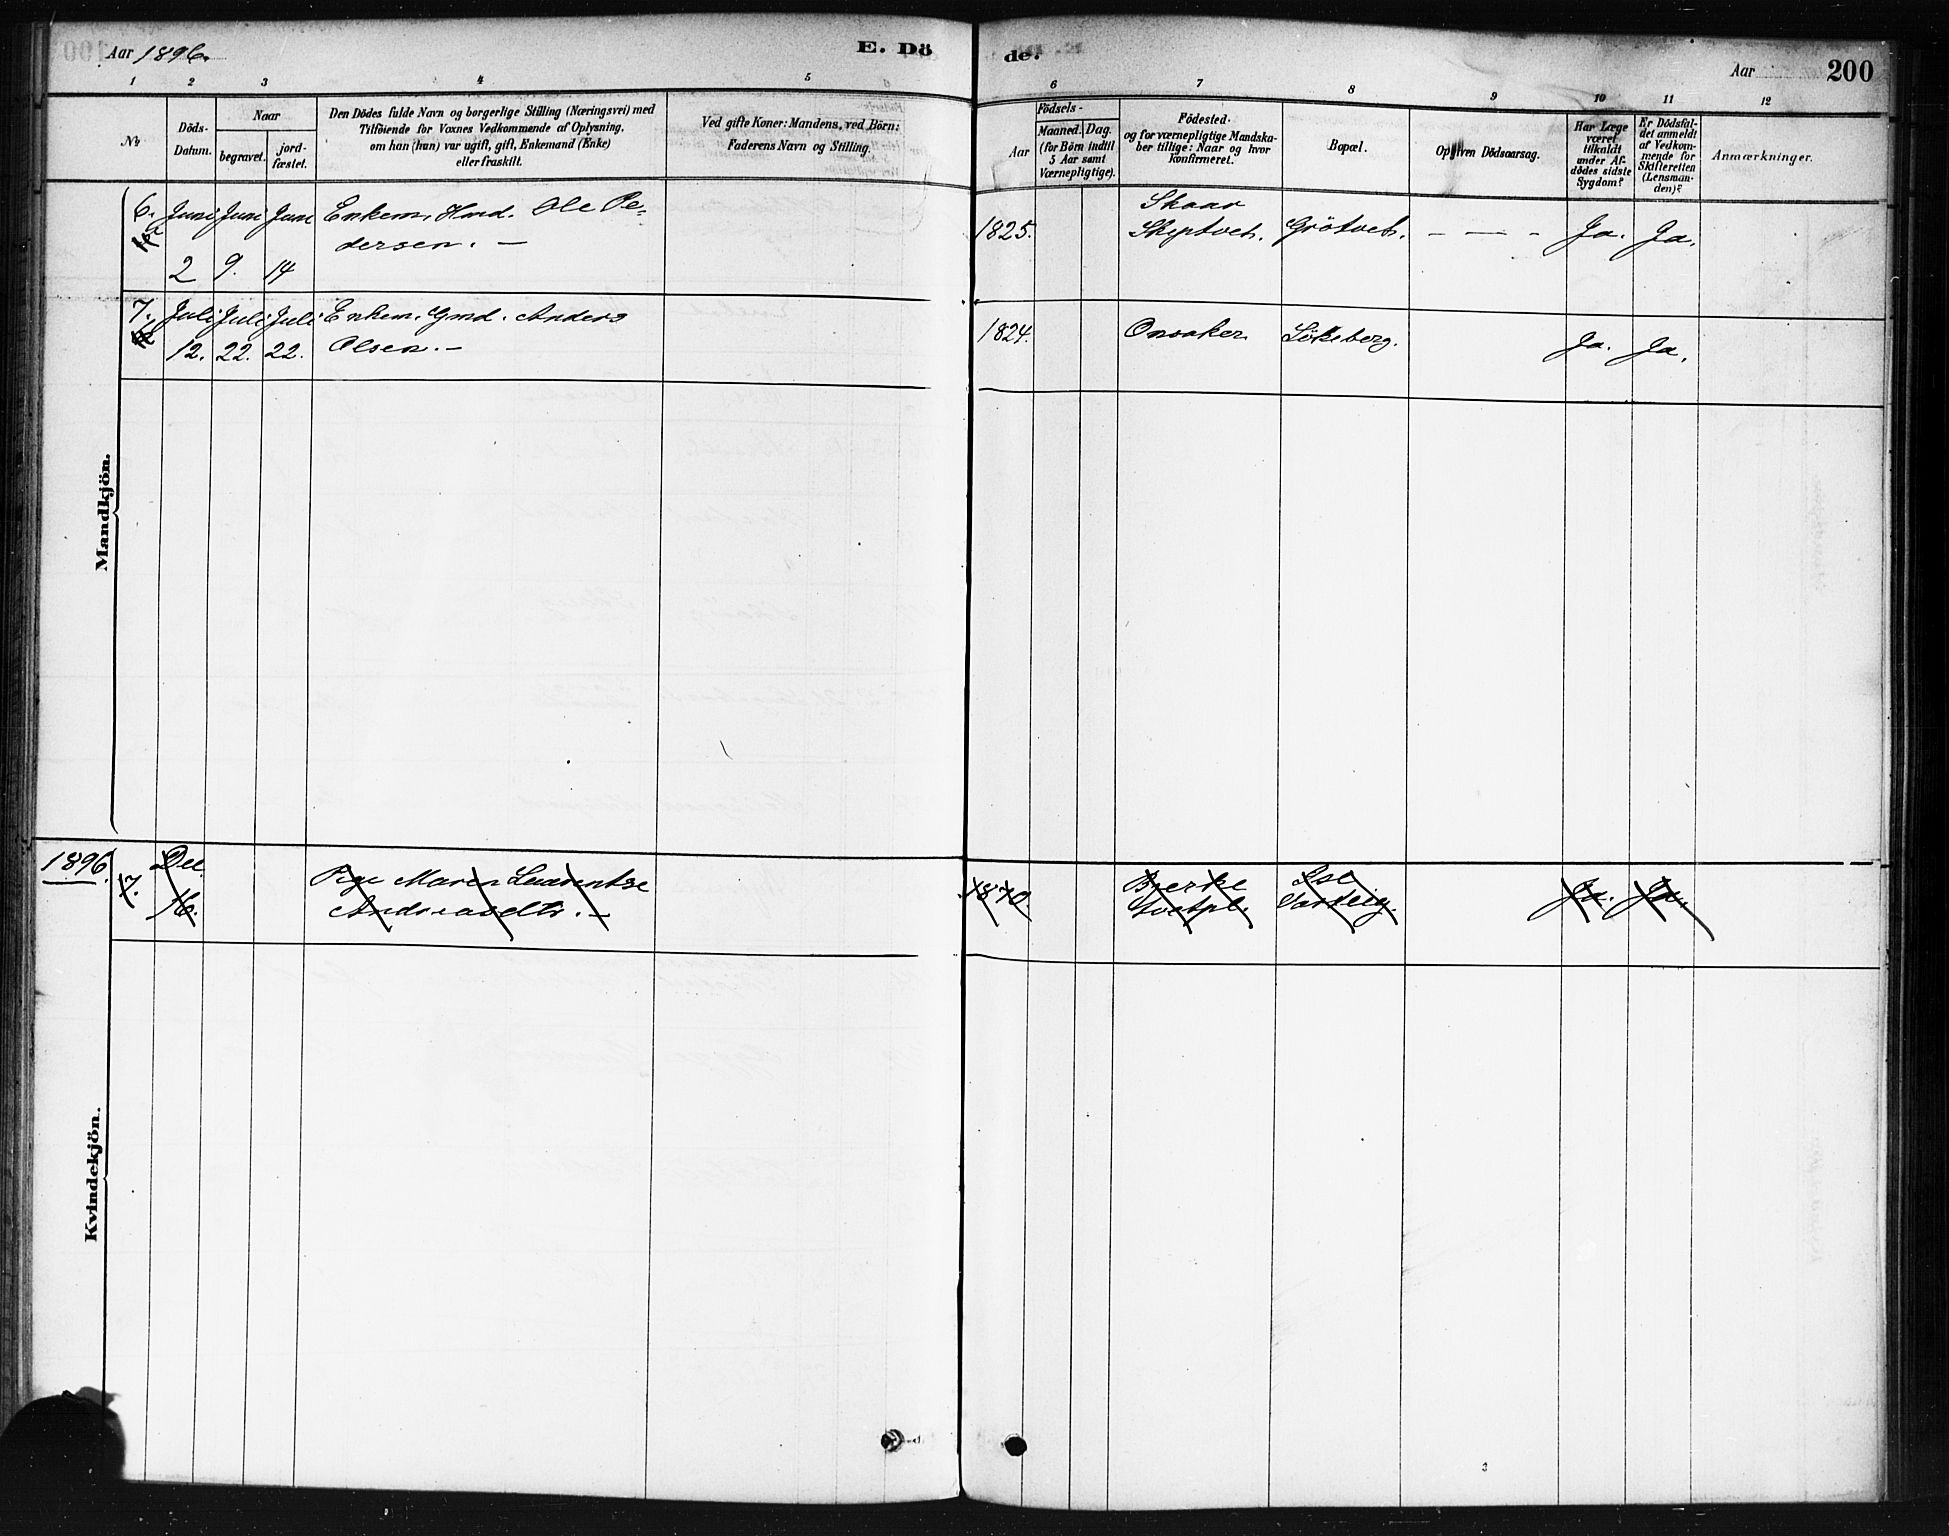 Aar 1896.
E. Dö
de.
Aar
200
1
2
3
4
5
6
7
8
9
10
11
12
No
Döds-
Datum.
Naar
begravet.
jord-
fæstet.
Den Dödes fulde Navn og borgerlige Stilling (Næringsvei) med
Tilföiende for Voxnes Vedkommende af Oplysning,
om han (hun) var ugift, gift, Enkemand (Enke)
eller fraskilt.
Ved gifte Koner: Mandens, ved Börn:
Faderens Navn og Stilling.
Födsels-
Aar
Maaned.
Dag.
(for Börn indtil
5 Aar samt
Værnepligtige).
Födested.
og for værnepligtige Mandska-
ber tillige: Naar og hvor
konfirmeret.
Bopæl.
Opgiven Dödsaarsag.
Har Læge
været
tilkaldt
under Af-
dödes sidste
Sygdom?
Er Dödsfal-
det anmeldt
af Vedkom-
mende for
Skifteretten
(Lensman-
den)?
Anmærkninger.
Mandkjön.
6.
Juni Juni Juni
Enkem. Hmd. Ole Pe-
dersen. —
2 9. 14
1825.
Skaar
Skiptvet.
Grötvet.
- — -
Ja. Ja.
7.
Juli Juli Juli
Enkem. Gmd. Anders
12. 22. 22.
Olsen. —
1824.
Onsaker
Lökeberg.
Ja. Ja.
1896.
Kvindekjön.
7.
Dec
16.
Pige Maren Laurentse
Andreasdtr. —
1870
Bjerke
Tvetpl.
Ise
Varteig.
Ja. Ja.
3